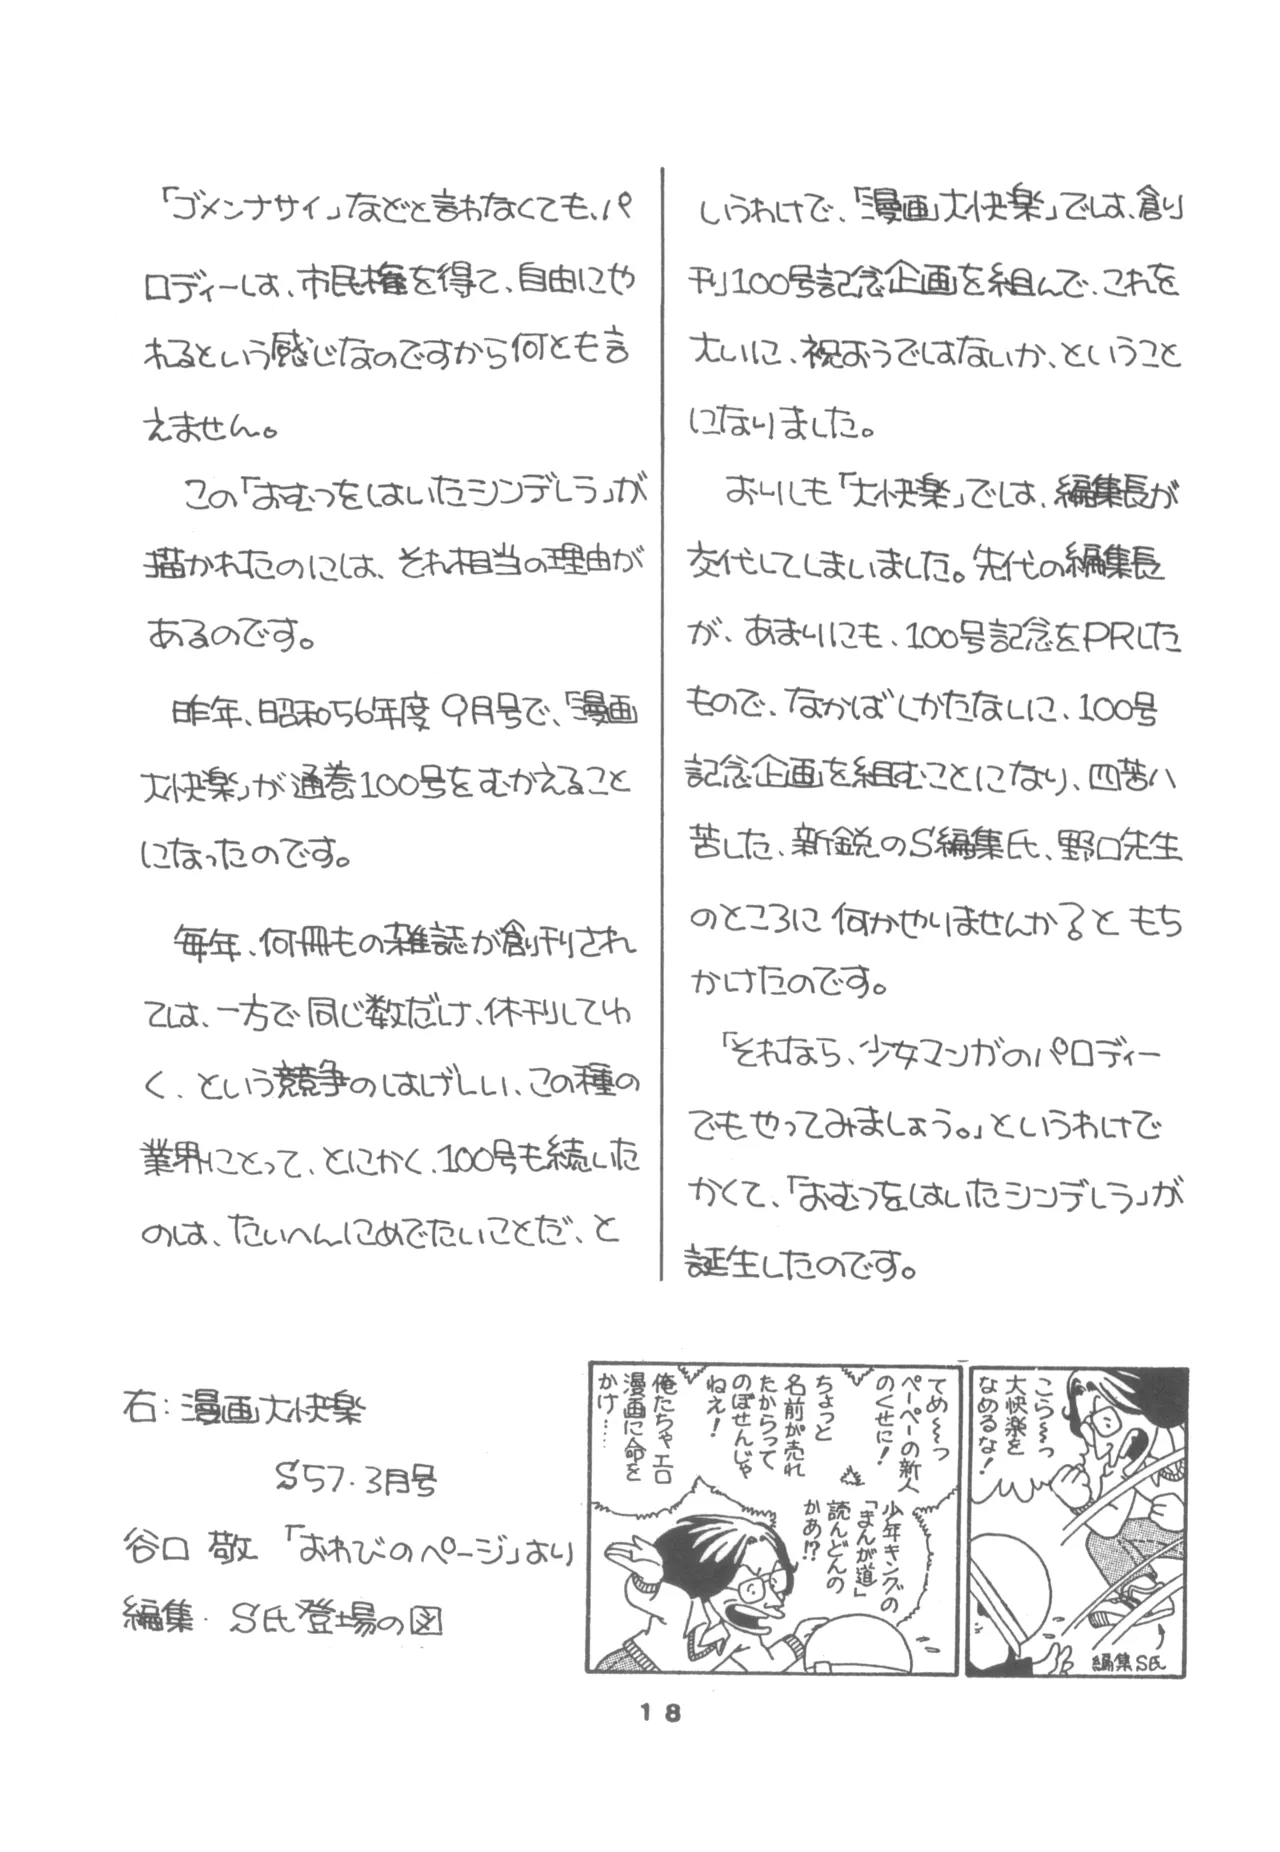 「ゴメンナサイ」などと言わなくても、パ
ロディーは、市民権を得て、自由にや
れるという感じなのですから何とも言
えません。
この「おむつをはいたシンデレラ」が
描かれたのには、それ相当の理由が
あるのです。
昨年、昭和56年度9月号で、「漫画
大快楽」が通巻100号をむかえること
になったのです。
毎年、何冊もの雑誌が創刊され
ては、一方で同じ数だけ、休刊してゆ
く、という競争のはげしい、この種の
業界にとって、とにかく、100号も続いた
のは、たいへんにめでたいことだ、と
いうわけで、「漫画大快楽」では、創
刊100号記念企画を組んで、これを
大いに、祝おうではないか、ということ
になりました。
おりしも「大快楽」では、編集長が
交代してしまいました。先代の編集長
が、あまりにも、100号記念をPRした
もので、なかばしかたなしに、100号
記念企画を組むことになり、四苦八
苦した、新鋭のS編集氏、野口先生
のところに何かやりませんか?ともち
かけたのです。
「それなら、少女マンガのパロディー
でもやってみましょう。」というわけで
かくて、「おむつをはいたシンデレラ」が
誕生したのです。
右:漫画大快楽
S57.3月号
谷口 敬 「おわびのページ」より
編集・S氏登場の図
こら〜〜っ
大快楽を
なめるな!
編集S氏
てめ〜〜っ
ペーペーの新人
のくせに!
ちょっと
名前が売れ
たからって
のぼせんじゃ
ねえ!
俺たちゃエロ
漫画に命を
かけ……
少年キングの
「まんが道」
読んどんの
かあ!?
18